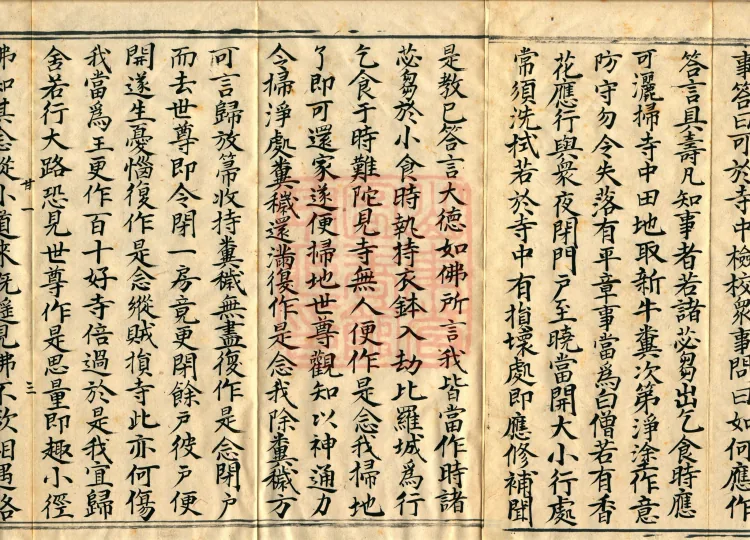 事答曰可於寺中檢校衆事問曰如何應作
答言具壽凡知事者若諸苾芻出乞食時應
可灑掃寺中田地取新牛糞次第淨塗作意
防守勿令失落有平章事當爲白僧若有香
花應行與衆夜閉門戶至曉當開大小行處
常須洗拭若於寺中有損壞處即應修補聞
是教已答言大德如佛所言我皆當作時諸
苾芻於小食時執持衣鉢入劫比羅城爲行
乞食于時難陀見寺無人便作是念我掃地
了即可還家遂便掃地世尊觀知以神通力
令掃淨處糞穢還滿復作是念我除糞穢方
可言歸放箒收持糞穢無盡復作是念閉戶
而去世尊即令閉一房竟更閉餘戶彼戶便
開遂生憂惱復作是念縱賊損寺此亦何傷
我當爲王更作百十好寺倍過於是我宜歸
舍若行大路恐見世尊作是思量即趣小徑
廿一 三
佛知其念從小道來旣遙見佛不欲相遇路